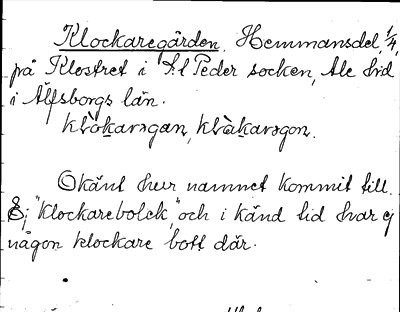 Klockaregården. Hemmansdel, 1/4,
på Klostret i S:t Peder socken, Ale hrd
i Älfsborgs län.
klåkaragan, klåkaragon.
Okänt hur namnet kommit till.
Ej "klockarebolck", och i känd tid har ej
någon klockare bott där.